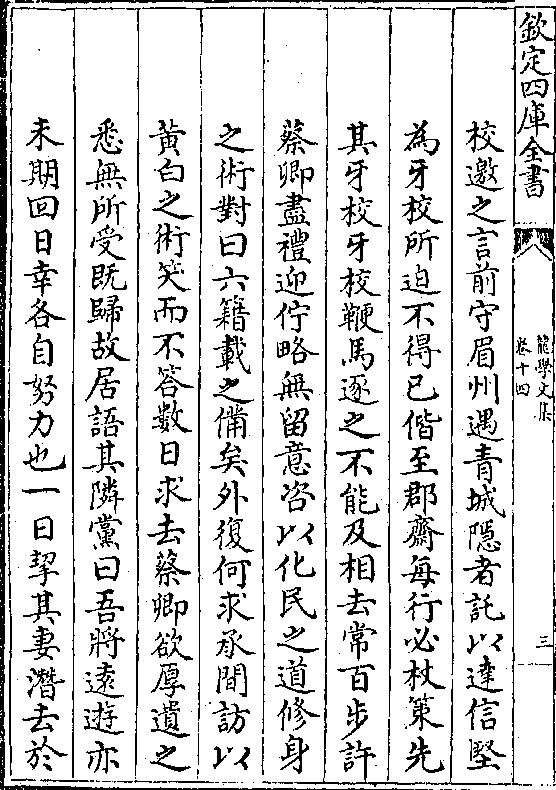 欽定四庫全書
龍學文集
卷十四
三
校邀之言前守眉州遇青城隱者託以達信堅
為牙校所迫不得已偕至郡齋每行必杖策先
其牙校牙校鞭馬逐之不能及相去常百步許
蔡卿盡禮迎佇略無留意咨以化民之道修身
之術對曰六籍載之備矣外復何求承間訪以
黃白之術笑而不答數日求去蔡卿欲厚遺之
悉無所受既歸故居語其隣黨曰吾將遠遊亦
未期回日幸各自努力也一日挈其妻潛去於